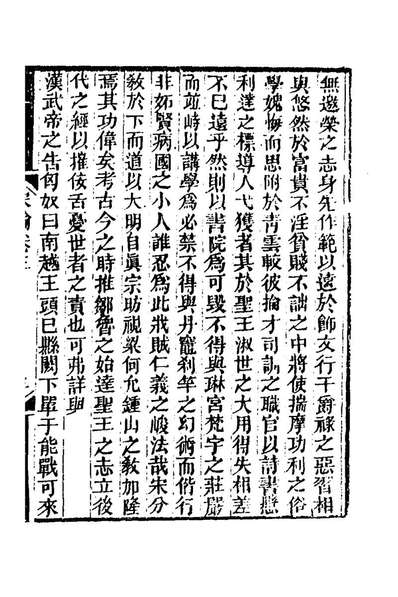 無邀榮之志身先作範以遠於飾文行干爵祿之惡習相
與悠然於富貴不淫貧賤不詘之中將使揣摩功利之俗
學媿悔而思附於青雲較彼掄才司訓之職官以詩書懸
利達之標導人弋獲者其於聖王淑世之大用得失相差
不已遠乎然則以書院爲可毀不得與琳宮梵宇之莊嚴
而竝峙以講學爲必禁不得與丹竈刹竿之幻術而偕行
非妬賢病國之小人誰忍爲此戕賊仁義之峻法哉宋分
敎於下而道以大明自眞宗助視梁何允鍾山之敎加隆
焉其功偉矣考古今之時推鄒魯之始達聖王之志立後
代之經以摧佞舌憂世者之責也可弗詳與
漢武帝之告匈奴曰南越王頭巳縣闕下單于能戰可來
宋論卷三